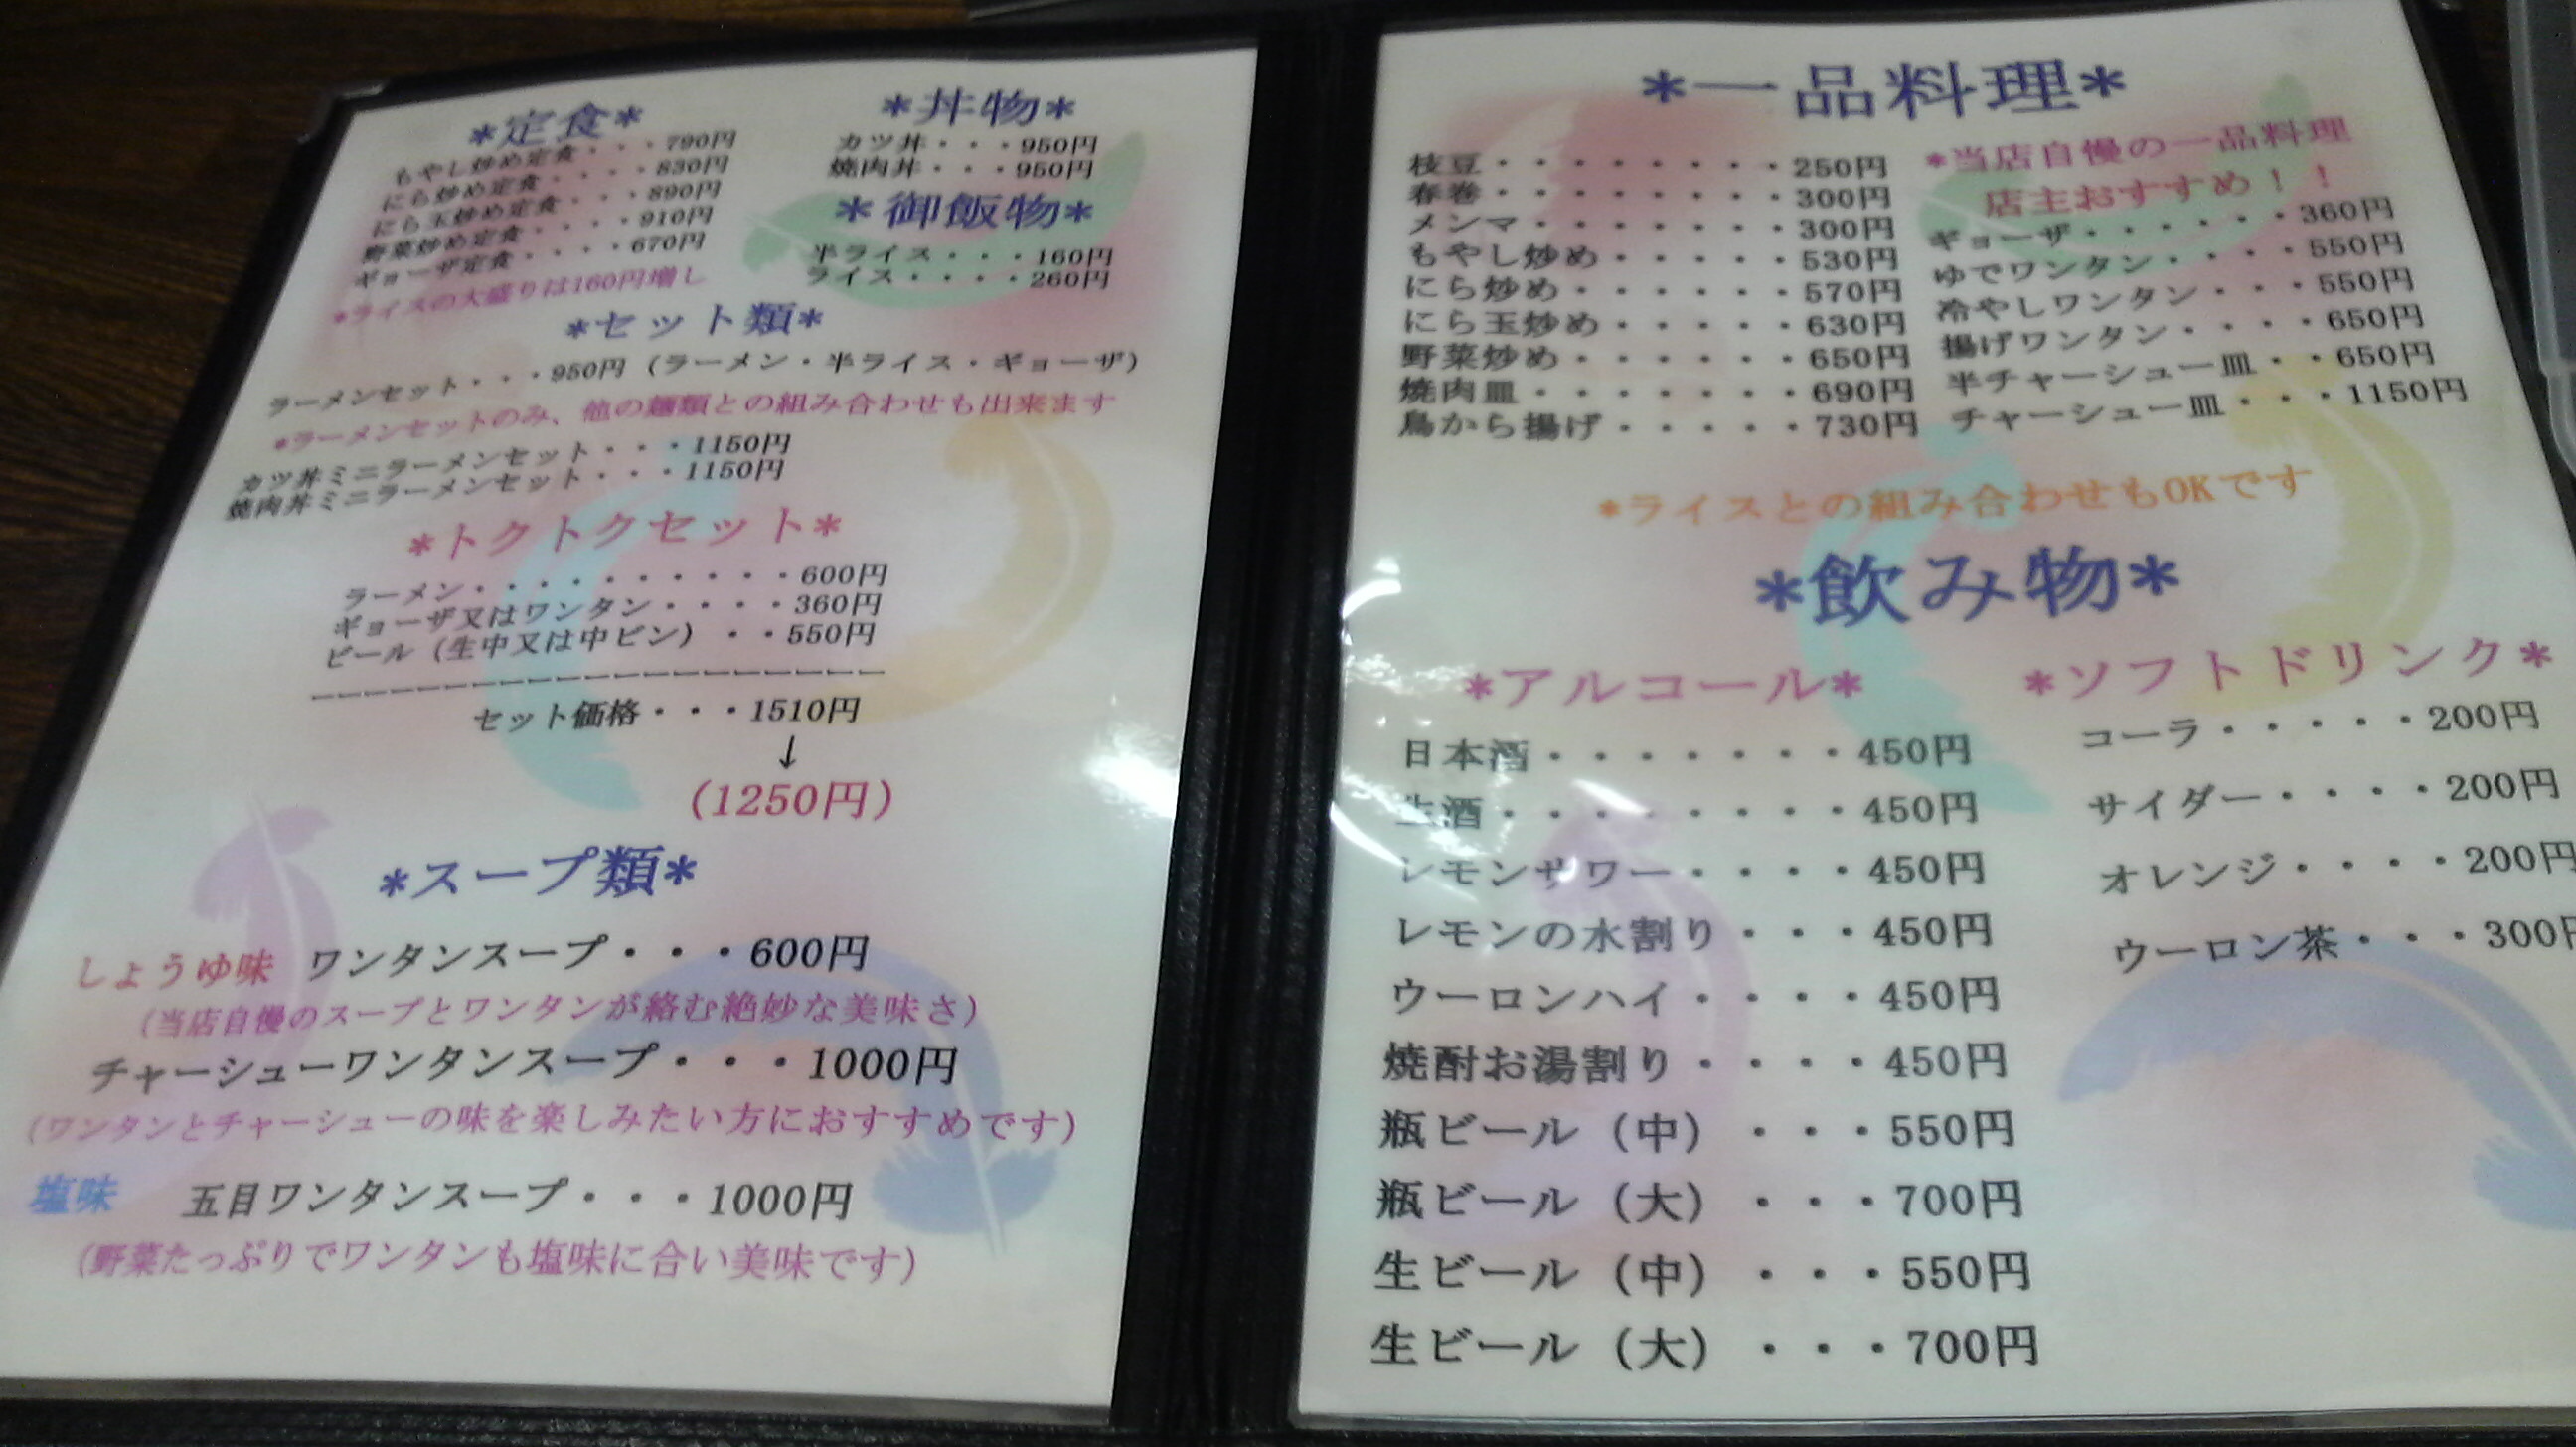 *定食*
もやし炒め定食・・・790円
にら炒め定食・・・・830円
にら玉炒め定食・・・890円
野菜炒め定食・・・・910円
ギョーザ定食・・・・670円
*ライスの大盛りは160円増し
*丼物*
カツ丼・・・950円
焼肉丼・・・950円
*御飯物*
半ライス・・・160円
ライス・・・・260円
*セット類*
ラーメンセット・・・950円（ラーメン・半ライス・ギョーザ）
*ラーメンセットのみ、他の麺類との組み合わせも出来ます
カツ丼ミニラーメンセット・・・1150円
焼肉丼ミニラーメンセット・・・1150円
*トクトクセット*
ラーメン・・・・・・・・・・600円
ギョーザ又はワンタン・・・・360円
ビール（生中又は中ビン）・・550円
セット価格・・・1510円
↓
（1250円）
*スープ類*
しょうゆ味 ワンタンスープ・・・600円
（当店自慢のスープとワンタンが絡む絶妙な美味さ）
チャーシューワンタンスープ・・・1000円
（ワンタンとチャーシューの味を楽しみたい方におすすめです）
塩味 五目ワンタンスープ・・・1000円
（野菜たっぷりでワンタンも塩味に合い美味です）
*一品料理*
枝豆・・・・・・・・・250円
春巻・・・・・・・・・300円
メンマ・・・・・・・・300円
もやし炒め・・・・・・530円
にら炒め・・・・・・・570円
にら玉炒め・・・・・・630円
野菜炒め・・・・・・・650円
焼肉皿・・・・・・・・690円
鳥から揚げ・・・・・・730円
*当店自慢の一品料理
店主おすすめ！！
ギョーザ・・・・・・360円
ゆでワンタン・・・・550円
冷やしワンタン・・・550円
揚げワンタン・・・・650円
半チャーシュー皿・・650円
チャーシュー皿・・・1150円
*ライスとの組み合わせもOKです
*飲み物*
*アルコール*
日本酒・・・・・・・450円
生酒・・・・・・・・450円
レモンサワー・・・・450円
レモンの水割り・・・450円
ウーロンハイ・・・・450円
焼酎お湯割り・・・・450円
瓶ビール（中）・・・550円
瓶ビール（大）・・・700円
生ビール（中）・・・550円
生ビール（大）・・・700円
*ソフトドリンク*
コーラ・・・・・200円
サイダー・・・・200円
オレンジ・・・・200円
ウーロン茶・・・300円